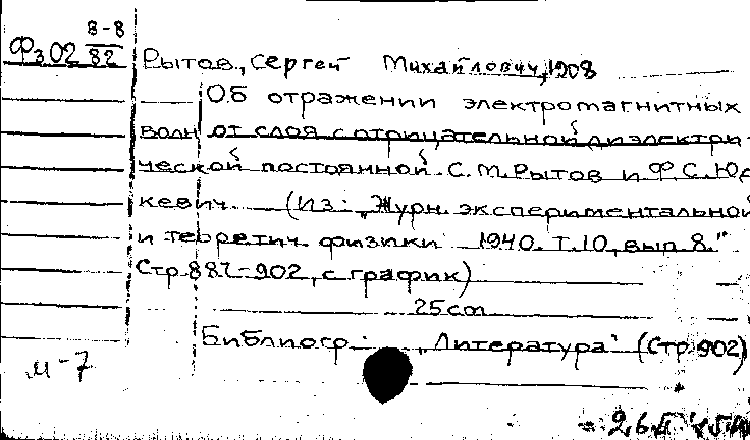 В-8
Фз02 82
Рытов, Сергей Михайлович, 1908
Об отражении электромагнитных
волн от слоя с отрицательной диэлектри-
ческой постоянной. С.М. Рытов и Ф.С. Юр
кевич. (Из: „Журн. экспериментальной
и теоретич. физики 1940. Т.10, вып. 8."
Стр. 887-902, с график)
25 cm
Библиогр.: „Литература" (Стр. 902)
м-7